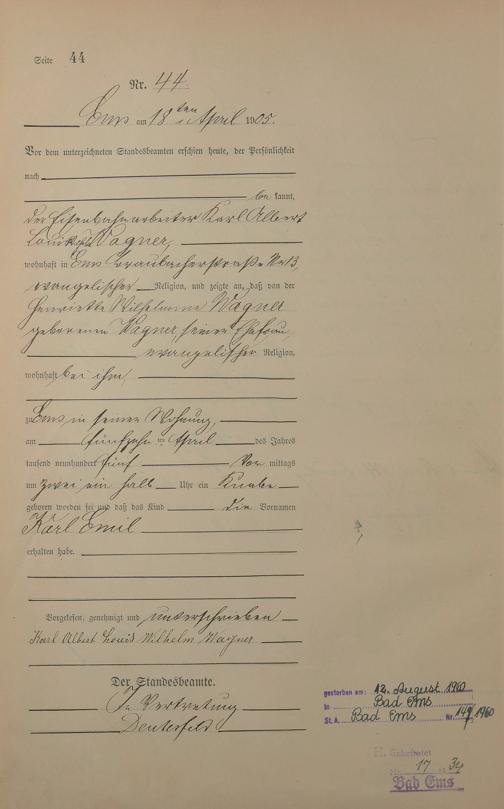 Seite 44
Nr. 44
Ems am 18ten April 1905.
Vor dem unterzeichneten Standesbeamten erschien heute, der Persönlichkeit
nach
bekannt,
der Eisenbahnarbeiter Karl Albert
Louis Wagner,
wohnhaft in Ems Braubacherstraße Nr 13,
evangelischer Religion, und zeigte an, daß von der
Henriette Wilhelmine Wagner
geborenen Wagner, seiner Ehefrau,
evangelischer Religion,
wohnhaft bei ihm,
zu Ems in seiner Wohnung,
am fünfzehnten April des Jahres
tausend neunhundert fünf Vormittags
um zwei ein halb Uhr ein Knabe
geboren worden sei und daß das Kind die Vornamen
Karl Emil
erhalten habe.
Vorgelesen, genehmigt und unterschrieben
Karl Albert Louis Wilhelm Wagner
Der Standesbeamte.
In Vertretung
gestorben am: 12. August 1960
in Bad Ems
St. A. Bad Ems Nr. 149/1960
H. Geheiratet
Nr. 17 34
Bad Ems